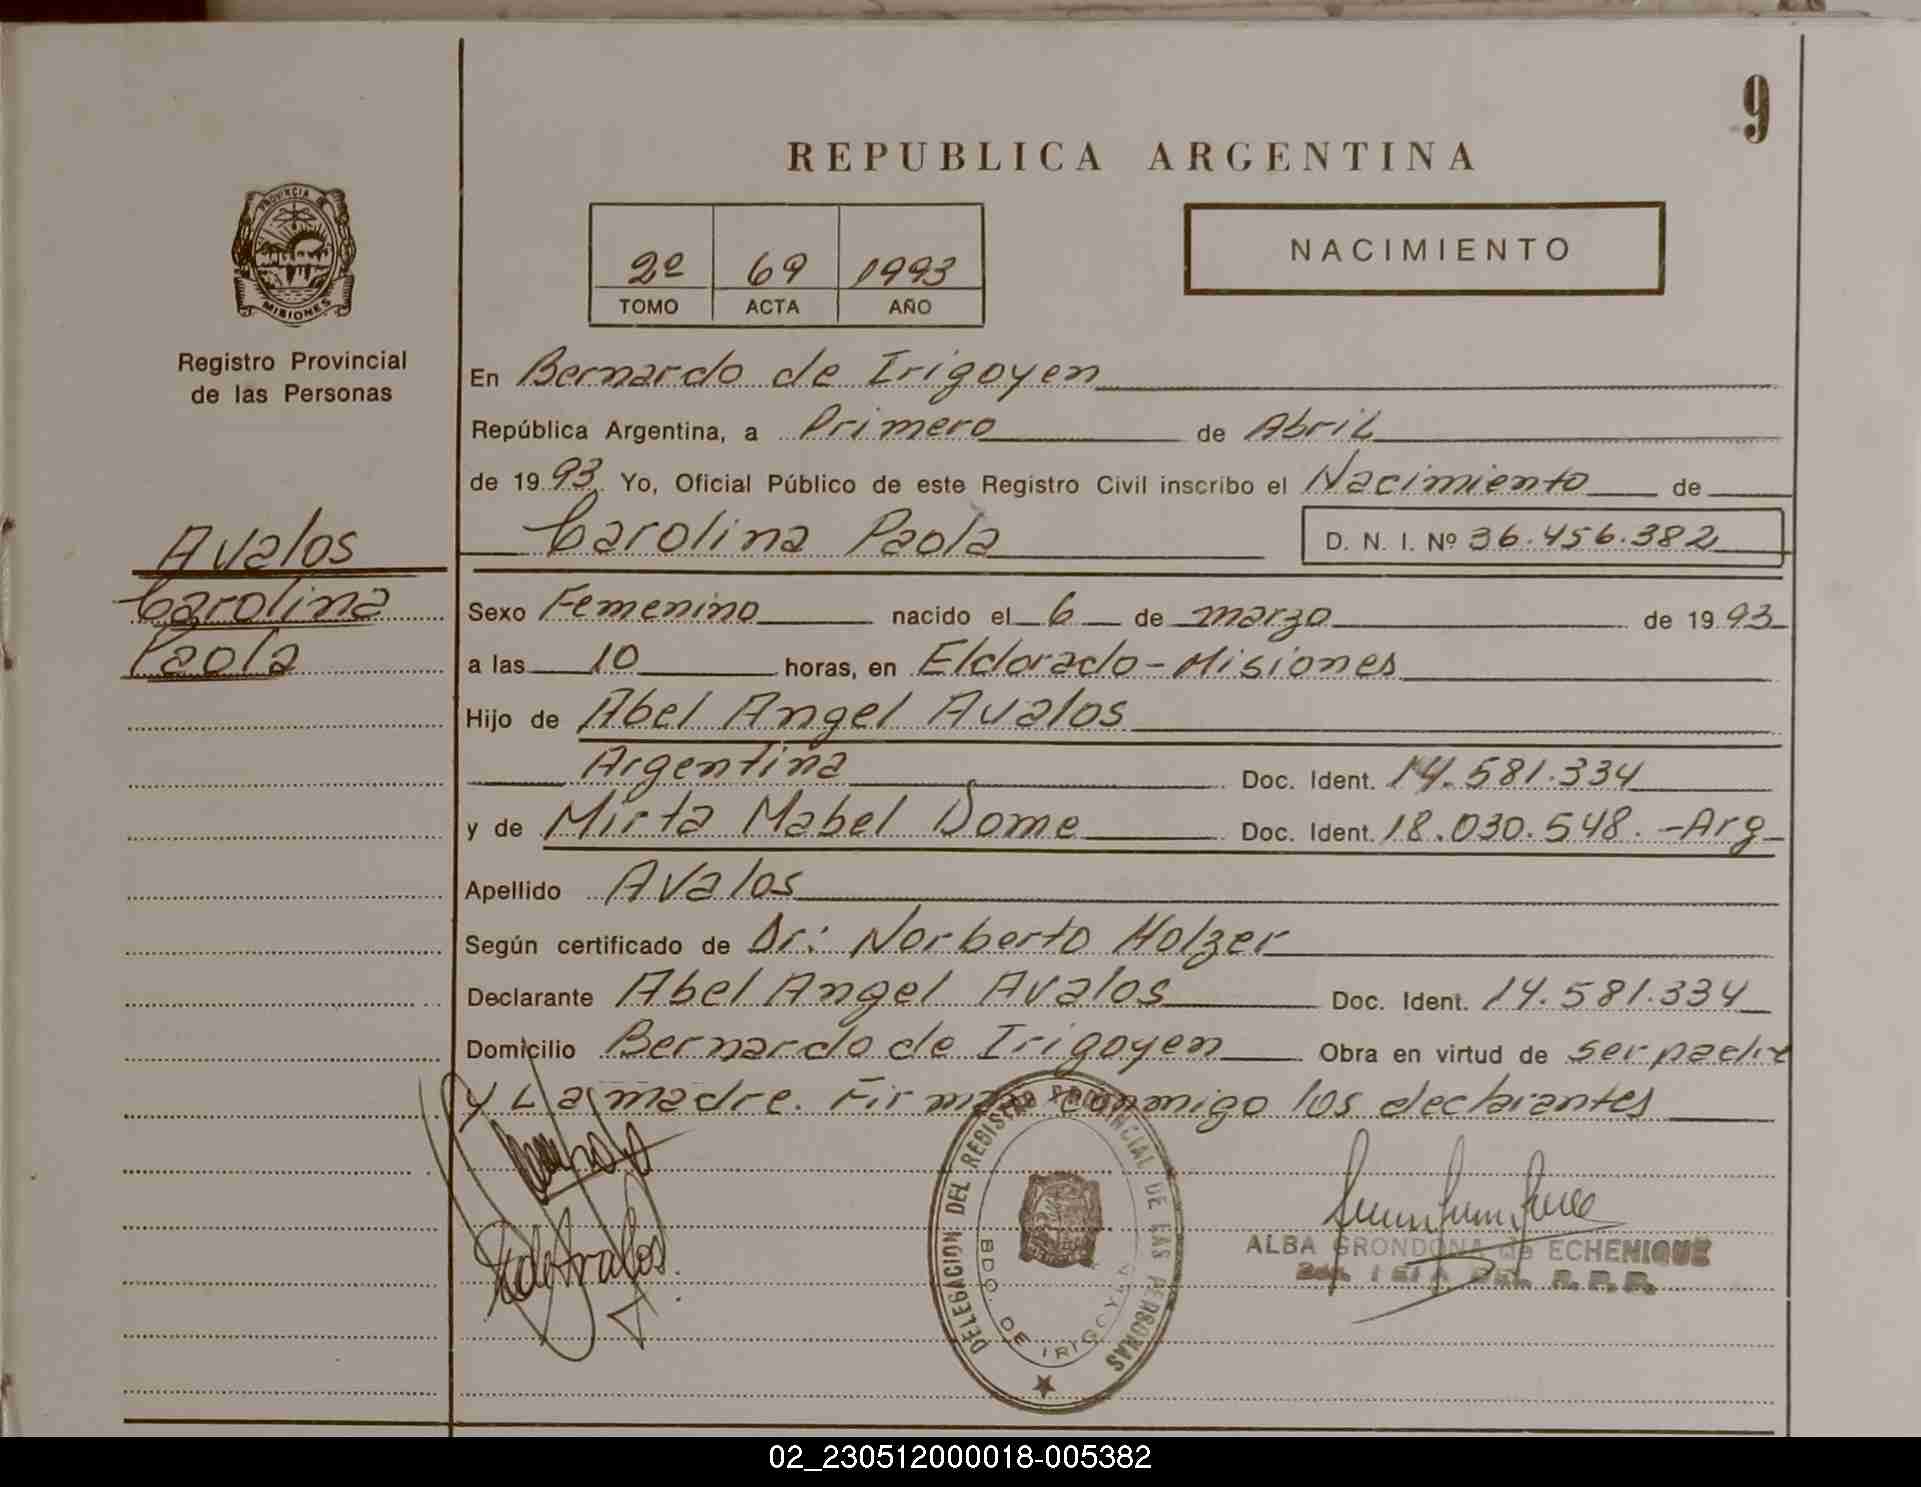 9
REPUBLICA ARGENTINA
PROVINCIA DE
MISIONES
Registro Provincial
de las Personas
2º 69 1993
TOMO ACTA AÑO
NACIMIENTO
En Bernardo de Irigoyen
República Argentina, a Primero de Abril
de 1993 Yo, Oficial Público de este Registro Civil inscribo el Nacimiento de
Carolina Paola D. N. I. Nº 36.456.382
Avalos
Carolina
Paola
Sexo Femenino nacido el 6 de marzo de 1993
a las 10 horas, en Eldorado - Misiones
Hijo de Abel Angel Avalos
Argentina Doc. Ident. 14.581.334
y de Mirta Mabel Dome Doc. Ident. 18.030.548. - Arg
Apellido Avalos
Según certificado de Dr: Norberto Holzer
Declarante Abel Angel Avalos Doc. Ident. 14.581.334
Domicilio Bernardo de Irigoyen Obra en virtud de ser padre
y La madre. Firman conmigo los declarantes
DELEGACION DEL REGISTRO PROVINCIAL DE LAS PERSONAS
BDO. DE IRIGOYEN
ALBA GRONDONA de ECHENIQUE
R. P. P.
02_230512000018-005382